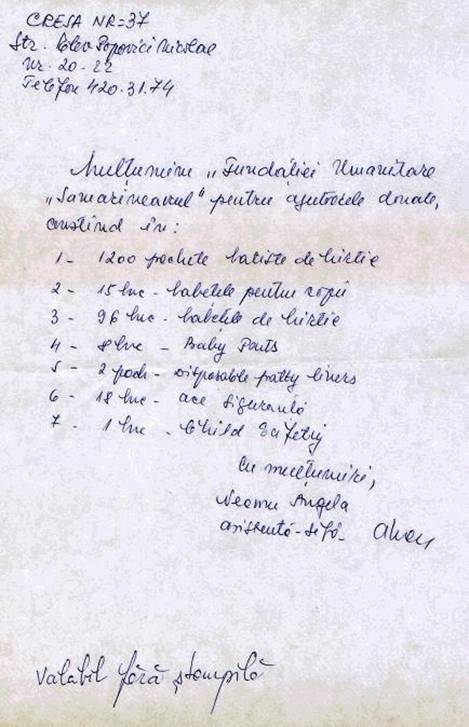 CRESA NR=37
Str. Elev Popovici Nicolae
Nr. 20-22
Telefon 420.31.74
Mulțumim „Fundației Umanitare
„Samarineanul" pentru ajutoarele donate,
constînd în:
1- 1200 pachete batiste de hîrtie
2- 15 buc - babetele pentru copii
3- 96 buc - babețele de hîrtie
4- 8 buc - Baby Pants
5- 2 pach - Disposable patty liners
6- 18 buc - ace siguranță
7- 1 buc - Child Safety
Cu mulțumiri,
Neamu Angela
asistentă-șefă
Valabil fără ștampilă